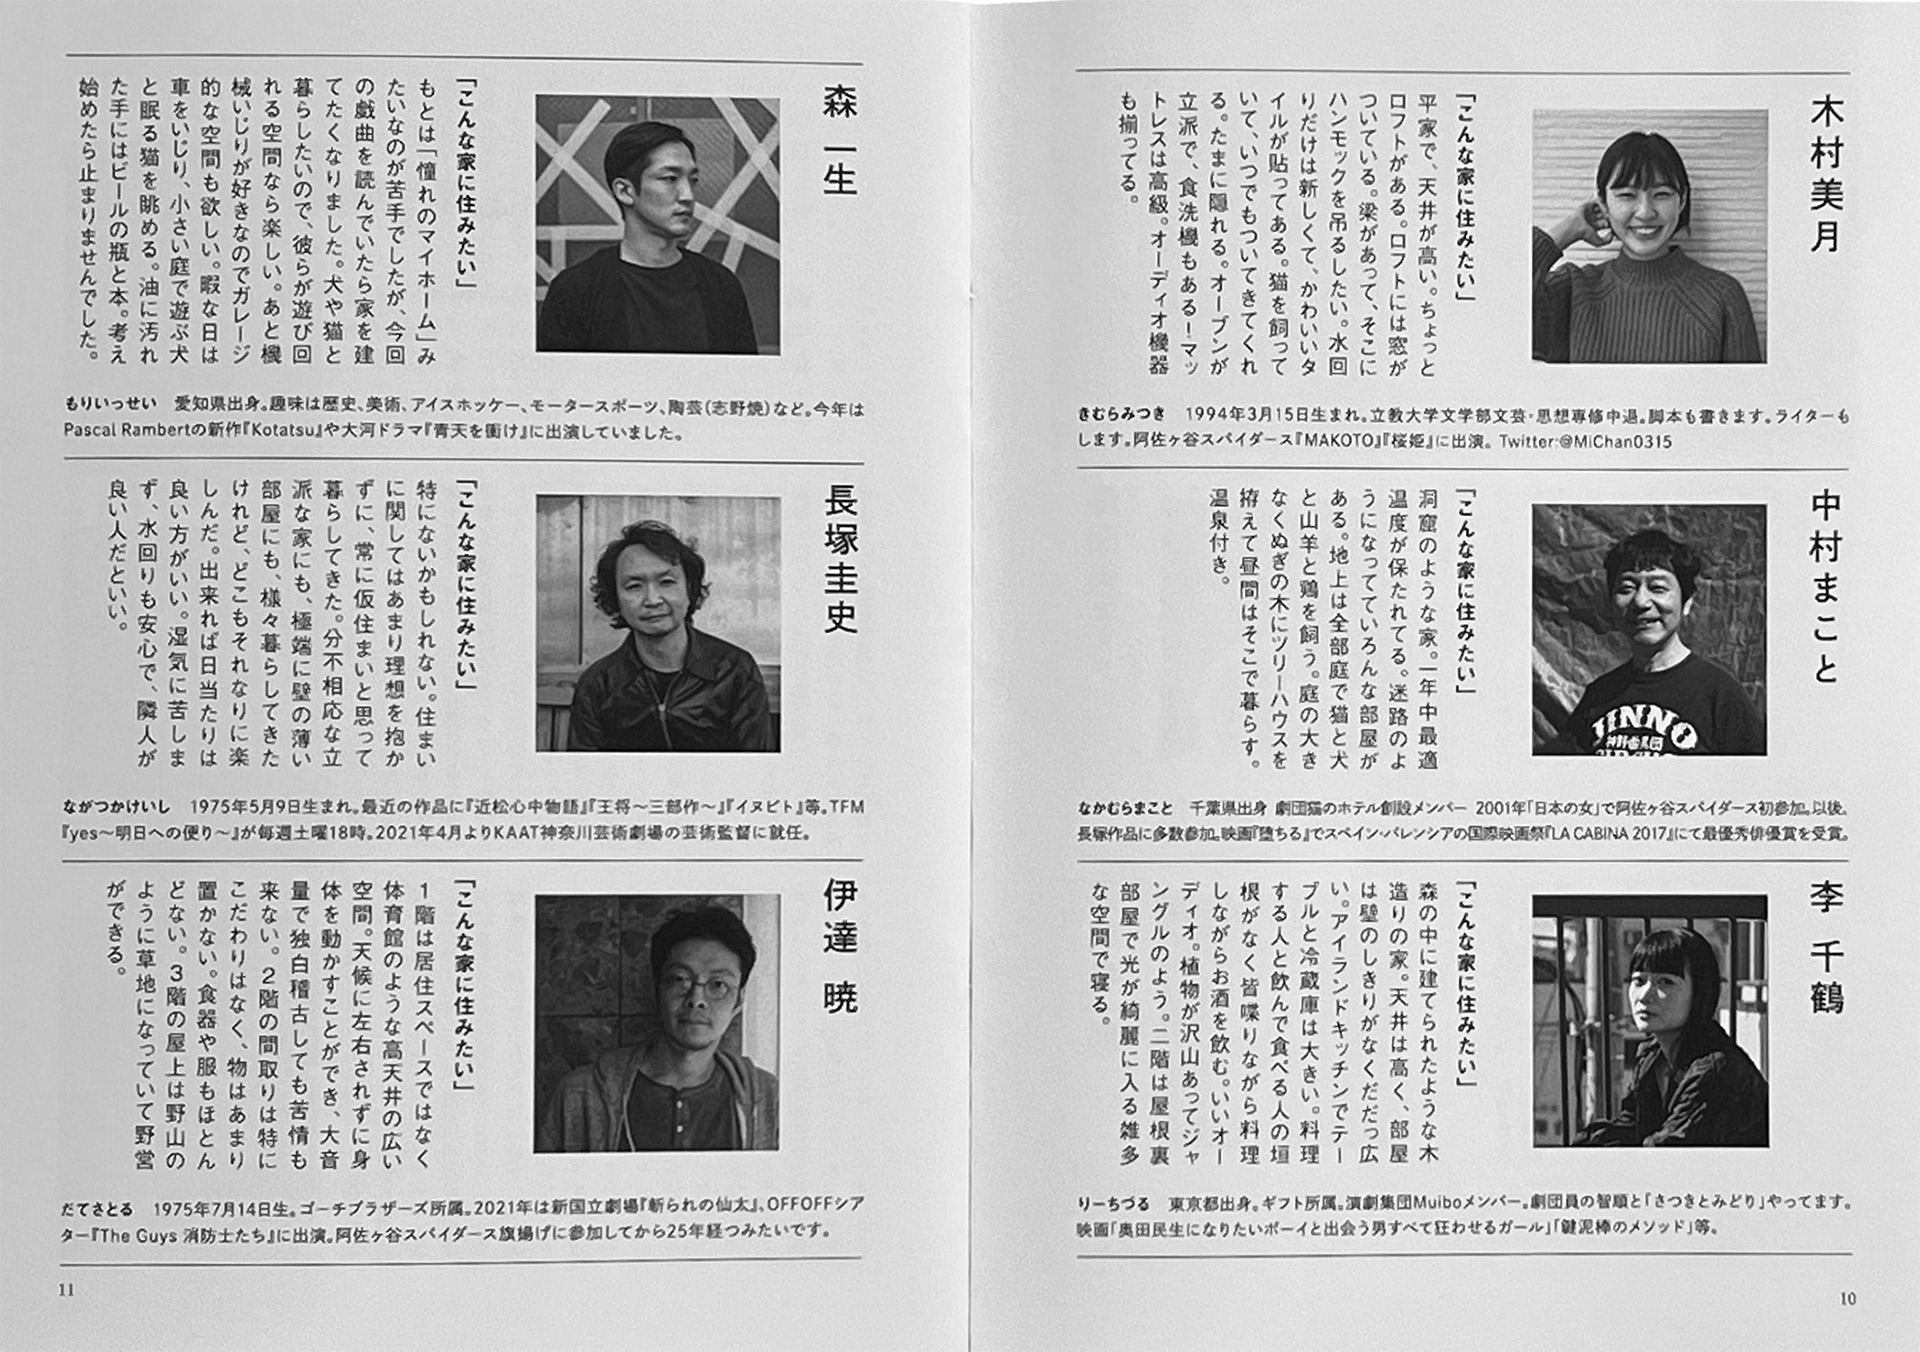 木村美月
「こんな家に住みたい」
平家で、天井が高い。ちょっと
ロフトがある。ロフトには窓が
ついている。梁があって、そこに
ハンモックを吊るしたい。水回
りだけは新しくて、かわいいタ
イルが貼ってある。猫を飼って
いて、いつでもついてきてくれ
る。たまに隠れる。オーブンが
立派で、食洗機もある！マッ
トレスは高級。オーディオ機器
も揃ってる。
きむらみつき 1994年3月15日生まれ。立教大学文学部文芸・思想専修中退。脚本も書きます。ライターも
します。阿佐ヶ谷スパイダース『MAKOTO』『桜姫』に出演。 Twitter:@MiChan0315
中村まこと
「こんな家に住みたい」
洞窟のような家。一年中最適
温度が保たれてる。迷路のよ
うになってていろんな部屋が
ある。地上は全部庭で猫と犬
と山羊と鶏を飼う。庭の大き
なくぬぎの木にツリーハウスを
拵えて昼間はそこで暮らす。
温泉付き。
JINNO
神野歯風団
なかむらまこと 千葉県出身 劇団猫のホテル創設メンバー 2001年「日本の女」で阿佐ヶ谷スパイダース初参加。以後、
長塚作品に多数参加。映画『堕ちる』でスペイン・バレンシアの国際映画祭『LA CABINA 2017』にて最優秀俳優賞を受賞。
李 千鶴
「こんな家に住みたい」
森の中に建てられたような木
造りの家。天井は高く、部屋
は壁のしきりがなくだだっ広
い。アイランドキッチンでテー
ブルと冷蔵庫は大きい。料理
する人と飲んで食べる人の垣
根がなく皆喋りながら料理
しながらお酒を飲む。いいオー
ディオ。植物が沢山あってジャ
ングルのよう。二階は屋根裏
部屋で光が綺麗に入る雑多
な空間で寝る。
りーちづる 東京都出身。ギフト所属。演劇集団Muiboメンバー。劇団員の智順と「さつきとみどり」やってます。
映画「奥田民生になりたいボーイと出会う男すべて狂わせるガール」「鍵泥棒のメソッド」等。
10
森 一生
「こんな家に住みたい」
もとは「憧れのマイホーム」み
たいなのが苦手でしたが、今回
の戯曲を読んでいたら家を建
てたくなりました。犬や猫と
暮らしたいので、彼らが遊び回
れる空間なら楽しい。あと機
械いじりが好きなのでガレージ
的な空間も欲しい。暇な日は
車をいじり、小さい庭で遊ぶ犬
と眠る猫を眺める。油に汚れ
た手にはビールの瓶と本。考え
始めたら止まりませんでした。
もりいっせい 愛知県出身。趣味は歴史、美術、アイスホッケー、モータースポーツ、陶芸（志野焼）など。今年は
Pascal Rambertの新作『Kotatsu』や大河ドラマ『青天を衝け』に出演していました。
長塚圭史
「こんな家に住みたい」
特にないかもしれない。住まい
に関してはあまり理想を抱か
ずに、常に仮住まいと思って
暮らしてきた。分不相応な立
派な家にも、極端に壁の薄い
部屋にも、様々暮らしてきた
けれど、どこもそれなりに楽
しんだ。出来れば日当たりは
良い方がいい。湿気に苦しま
ず、水回りも安心で、隣人が
良い人だといい。
ながつかけいし 1975年5月9日生まれ。最近の作品に『近松心中物語』『王将〜三部作〜』『イヌビト』等。TFM
『yes〜明日への便り〜』が毎週土曜18時。2021年4月よりKAAT神奈川芸術劇場の芸術監督に就任。
伊達 暁
「こんな家に住みたい」
1階は居住スペースではなく
体育館のような高天井の広い
空間。天候に左右されずに身
体を動かすことができ、大音
量で独白稽古しても苦情も
来ない。2階の間取りは特に
こだわりはなく、物はあまり
置かない。食器や服もほとん
どない。3階の屋上は野山の
ように草地になっていて野営
ができる。
だてさとる 1975年7月14日生。ゴーチブラザーズ所属。2021年は新国立劇場『斬られの仙太』、OFFOFFシア
ター『The Guys 消防士たち』に出演。阿佐ヶ谷スパイダース旗揚げに参加してから25年経つみたいです。
11